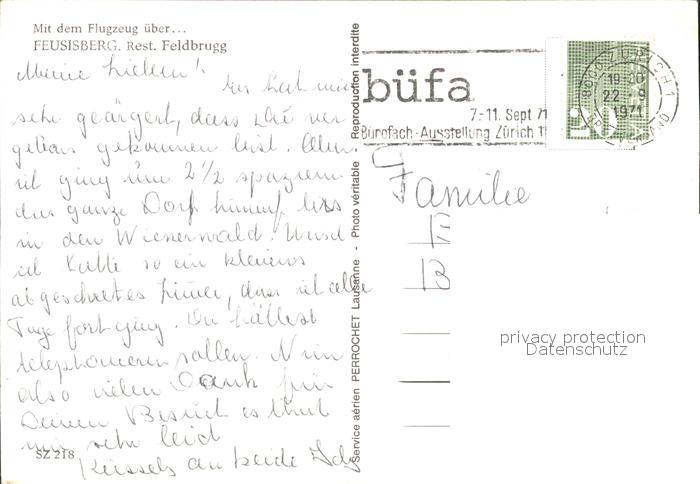 Mit dem Flugzeug über...
FEUSISBERG. Rest. Feldbrugg
Meine Lieben!
Es hat mich
sehr geärgert, dass Du ver
gebens gekommen bist. Aber
ich ging um 2½ spazieren
das ganze Dorf hinauf bis
in den Wienerwald. Und
ich hatte so ein kleines
Zimmer, dass ich alle
Tage fort ging. Du hättest
telephonieren sollen. Nun
also vielen Dank für
Deinen Besuch es thut
mir sehr leid
an beide Idy
SZ 218
Service aérien PERROCHET Lausanne - Photo véritable Reproduction interdite
büfa
7.-11. Sept 71
Bürofach-Ausstellung Zürich 11
8000 ZÜRICH 1
19-20
22 9
1971
20
Familie
E
B
privacy protection
Datenschutz